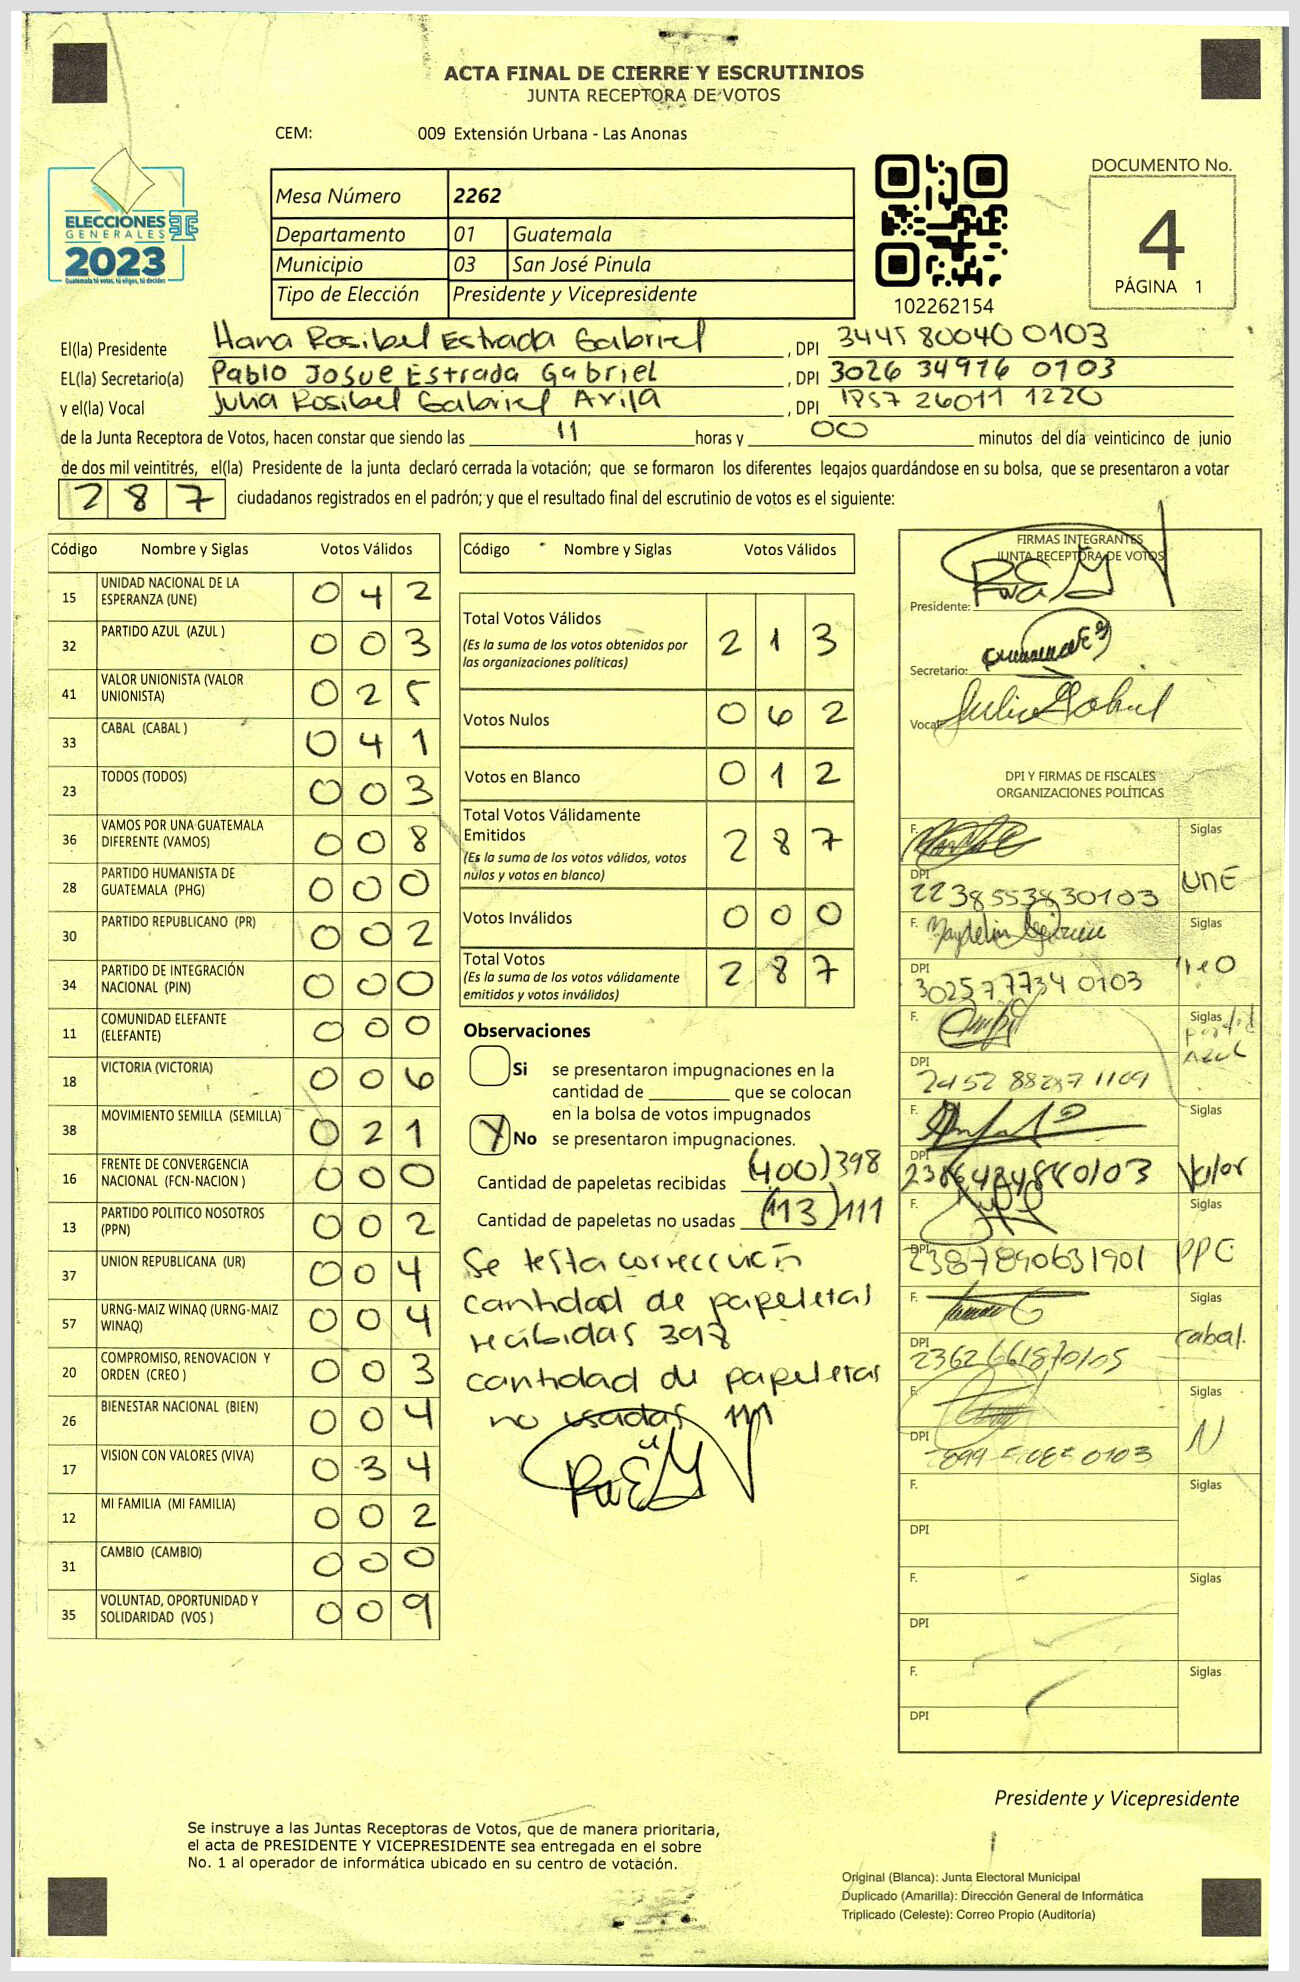 ACTA FINAL DE CIERRE Y ESCRUTINIOS
JUNTA RECEPTORA DE VOTOS
CEM: 009 Extensión Urbana - Las Anonas
ELECCIONES
GENERALES
2023
Guatemala tú votas, tú eliges, tú decides
Mesa Número 2262
Departamento 01 Guatemala
Municipio 03 San José Pinula
Tipo de Elección Presidente y Vicepresidente
102262154
DOCUMENTO No.
4
PÁGINA 1
El(la) Presidente Hana Rosibel Estrada Gabriel, DPI 3445 80040 0103
EL(la) Secretario(a) Pablo Josue Estrada Gabriel, DPI 3026 34976 0103
y el(la) Vocal Julia Rosibel Gabriel Avila, DPI 1857 26011 1220
de la Junta Receptora de Votos, hacen constar que siendo las 11 horas y 00 minutos del día veinticinco de junio
de dos mil veintitrés, el(la) Presidente de la junta declaró cerrada la votación; que se formaron los diferentes legajos guardándose en su bolsa, que se presentaron a votar
287 ciudadanos registrados en el padrón; y que el resultado final del escrutinio de votos es el siguiente:
Código Nombre y Siglas Votos Válidos
15 UNIDAD NACIONAL DE LA ESPERANZA (UNE) 0 4 2
32 PARTIDO AZUL (AZUL ) 0 0 3
41 VALOR UNIONISTA (VALOR UNIONISTA) 0 2 5
33 CABAL (CABAL ) 0 4 1
23 TODOS (TODOS) 0 0 3
36 VAMOS POR UNA GUATEMALA DIFERENTE (VAMOS) 0 0 8
28 PARTIDO HUMANISTA DE GUATEMALA (PHG) 0 0 0
30 PARTIDO REPUBLICANO (PR) 0 0 2
34 PARTIDO DE INTEGRACIÓN NACIONAL (PIN) 0 0 0
11 COMUNIDAD ELEFANTE (ELEFANTE) 0 0 0
18 VICTORIA (VICTORIA) 0 0 6
38 MOVIMIENTO SEMILLA (SEMILLA) 0 2 1
16 FRENTE DE CONVERGENCIA NACIONAL (FCN-NACION ) 0 0 0
13 PARTIDO POLITICO NOSOTROS (PPN) 0 0 2
37 UNION REPUBLICANA (UR) 0 0 4
57 URNG-MAIZ WINAQ (URNG-MAIZ WINAQ) 0 0 4
20 COMPROMISO, RENOVACION Y ORDEN (CREO ) 0 0 3
26 BIENESTAR NACIONAL (BIEN) 0 0 4
17 VISION CON VALORES (VIVA) 0 3 4
12 MI FAMILIA (MI FAMILIA) 0 0 2
31 CAMBIO (CAMBIO) 0 0 0
35 VOLUNTAD, OPORTUNIDAD Y SOLIDARIDAD (VOS ) 0 0 9
Código Nombre y Siglas Votos Válidos
Total Votos Válidos 2 1 3
(Es la suma de los votos obtenidos por
las organizaciones políticas)
Votos Nulos 0 6 2
Votos en Blanco 0 1 2
Total Votos Válidamente
Emitidos 2 8 7
(Es la suma de los votos válidos, votos
nulos y votos en blanco)
Votos Inválidos 0 0 0
Total Votos 2 8 7
(Es la suma de los votos válidamente
emitidos y votos inválidos)
Observaciones
Si se presentaron impugnaciones en la
cantidad de ________ que se colocan
en la bolsa de votos impugnados
X No se presentaron impugnaciones.
Cantidad de papeletas recibidas (400) 398
Cantidad de papeletas no usadas (113) 111
Se testa correccuión
cantidad de papeletas
recibidas 398
cantidad de papeletas
no usadas 111
FIRMAS INTEGRANTES
JUNTA RECEPTORA DE VOTOS
Presidente:
Secretario:
Vocal:
DPI Y FIRMAS DE FISCALES
ORGANIZACIONES POLÍTICAS
F. Siglas
DPI 2238553830103 UNE
F. Siglas
DPI 3025777340103
F. Siglas
DPI Azul
F. Siglas
DPI Valor
F. Siglas
DPI 2387890631901 PPC
F. Siglas
DPI cabal.
F. Siglas
DPI N
F. Siglas
DPI
F. Siglas
DPI
F. Siglas
DPI
Presidente y Vicepresidente
Se instruye a las Juntas Receptoras de Votos, que de manera prioritaria,
el acta de PRESIDENTE Y VICEPRESIDENTE sea entregada en el sobre
No. 1 al operador de informática ubicado en su centro de votación.
Original (Blanca): Junta Electoral Municipal
Duplicado (Amarilla): Dirección General de Informática
Triplicado (Celeste): Correo Propio (Auditoría)